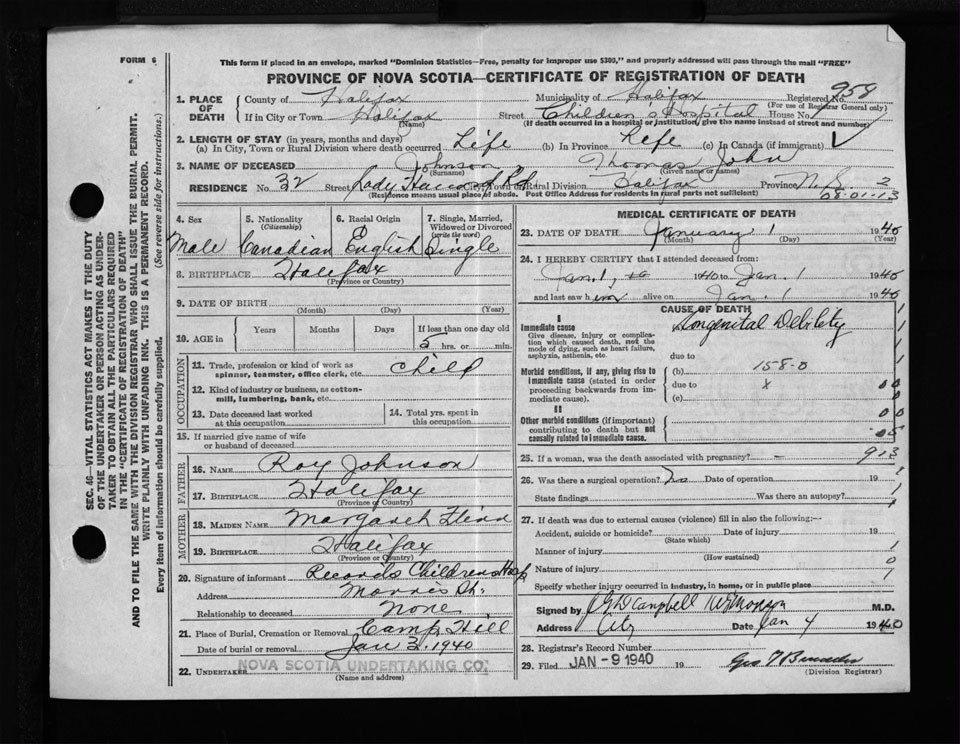 FORM 6
This form if placed in an envelope, marked "Dominion Statistics—Free, penalty for improper use $300," and properly addressed will pass through the mail "FREE"
PROVINCE OF NOVA SCOTIA—CERTIFICATE OF REGISTRATION OF DEATH
1. PLACE OF DEATH County of Halifax Municipality of Halifax Registered No. 959
(For use of Registrar General only)
If in City or Town Halifax Street Children's Hospital House No.
(Name) (If death occurred in a hospital or institution, give the name instead of street and number)
2. LENGTH OF STAY (in years, months and days)
(a) In City, Town or Rural Division where death occurred Life (b) In Province Life (c) In Canada (if immigrant)
3. NAME OF DECEASED Johnson, Thomas John
(Surname) (Given names or names)
RESIDENCE No. 32 Street City, Town or Rural Division Halifax Province N.S. 2
(Residence means usual place of abode. Post Office Address for residents in rural parts not sufficient) 08-01-13
4. Sex Male
5. Nationality (Citizenship) Canadian
6. Racial Origin English
7. Single, Married, Widowed or Divorced (write the word) Single
8. BIRTHPLACE Halifax
(Province or Country)
9. DATE OF BIRTH
(Month) (Day) (Year)
10. AGE in Years Months Days If less than one day old
5 hrs. or min.
OCCUPATION
11. Trade, profession or kind of work as spinner, teamster, office clerk, etc. Child
12. Kind of industry or business, as cotton-mill, lumbering, bank, etc.
13. Date deceased last worked at this occupation
14. Total yrs. spent in this occupation
15. If married give name of wife or husband of deceased
FATHER
16. NAME Roy Johnson
17. BIRTHPLACE Halifax
(Province or Country)
MOTHER
18. MAIDEN NAME Margaret
19. BIRTHPLACE Halifax
(Province or Country)
20. Signature of informant Records Childrens Hosp
Address Morris St.
Relationship to deceased None
21. Place of Burial, Cremation or Removal Camp Hill
Date of burial or removal Jan 3, 1940
22. UNDERTAKER NOVA SCOTIA UNDERTAKING CO.
(Name and address)
MEDICAL CERTIFICATE OF DEATH
23. DATE OF DEATH January 1 1940
(Month) (Day) (Year)
24. I HEREBY CERTIFY that I attended deceased from:
Jan. 1, to 1940 to Jan. 1 1940
and last saw him alive on Jan. 1 1940
CAUSE OF DEATH
I
Immediate cause Congenital Debility
Give disease, injury or complication which caused death, not the mode of dying, such as heart failure, asphyxia, asthenia, etc.
due to
Morbid conditions, if any, giving rise to immediate cause (stated in order proceeding backwards from immediate cause).
(b) 158-0
due to x
(c)
II
Other morbid conditions (if important) contributing to death but not causally related to immediate cause.
25. If a woman, was the death associated with pregnancy? — 913
26. Was there a surgical operation? No Date of operation 19
State findings Was there an autopsy?
27. If death was due to external causes (violence) fill in also the following:—
Accident, suicide or homicide? Date of injury 19
(State which)
Manner of injury
(How sustained)
Nature of injury
Specify whether injury occurred in industry, in home, or in public place
Signed by Campbell M.D.
Address City Date Jan 4 1940
28. Registrar's Record Number
29. Filed JAN - 9 1940 19
(Division Registrar)
SEC. 46—VITAL STATISTICS ACT MAKES IT THE DUTY
OF THE UNDERTAKER OR PERSON ACTING AS UNDER-
TAKER TO OBTAIN ALL THE PARTICULARS REQUIRED
IN THE "CERTIFICATE OF REGISTRATION OF DEATH"
AND TO FILE THE SAME WITH THE DIVISION REGISTRAR WHO SHALL ISSUE THE BURIAL PERMIT.
WRITE PLAINLY WITH UNFADING INK. THIS IS A PERMANENT RECORD.
Every item of information should be carefully supplied. (See reverse side for instructions.)